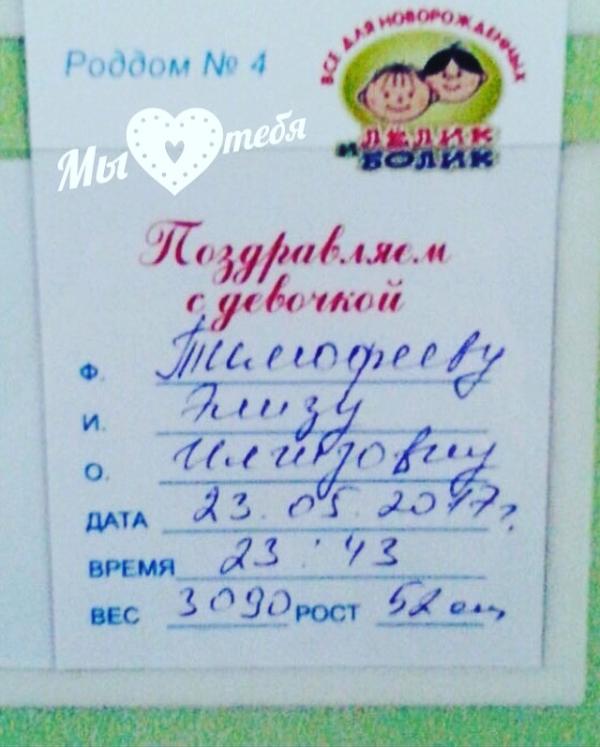 Роддом № 4
ВСЕ ДЛЯ НОВОРОЖДЕННЫХ
ЛЕЛИК
И БОЛИК
Мы тебя
Поздравляем
с девочкой
Ф. Тимофееву
И. Элизу
О. Илизовну
ДАТА 23.05.2017г.
ВРЕМЯ 23:43
ВЕС 3090 РОСТ 52 см